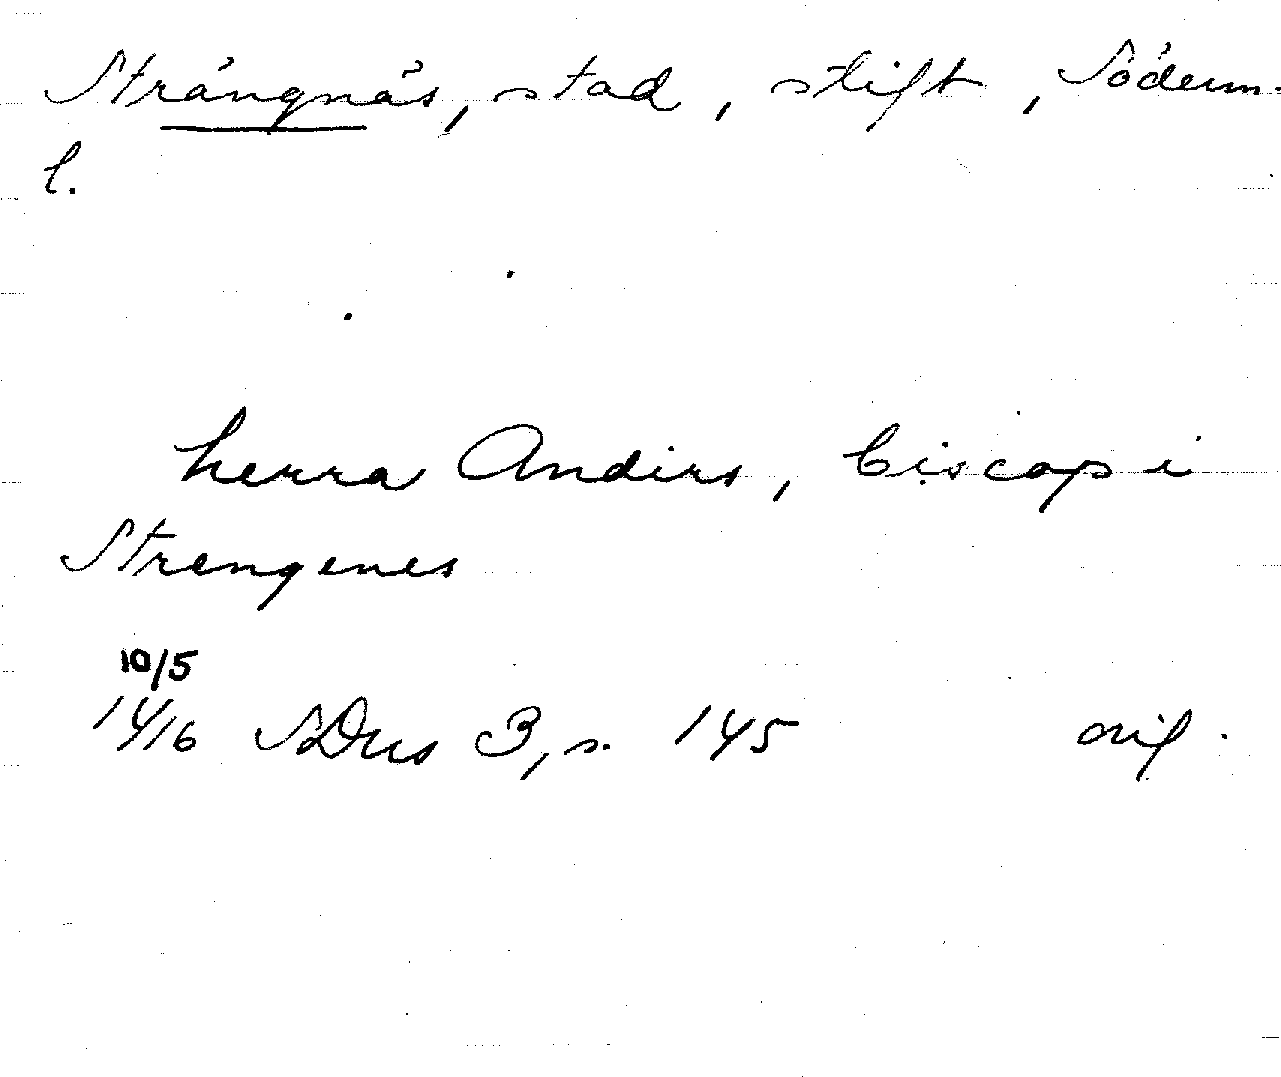 Strängnäs, stad, stift, Söderm.
l.
herra Anders, biscop i
Strengenes
10/5
1416 SDns 3, s. 145 orig.